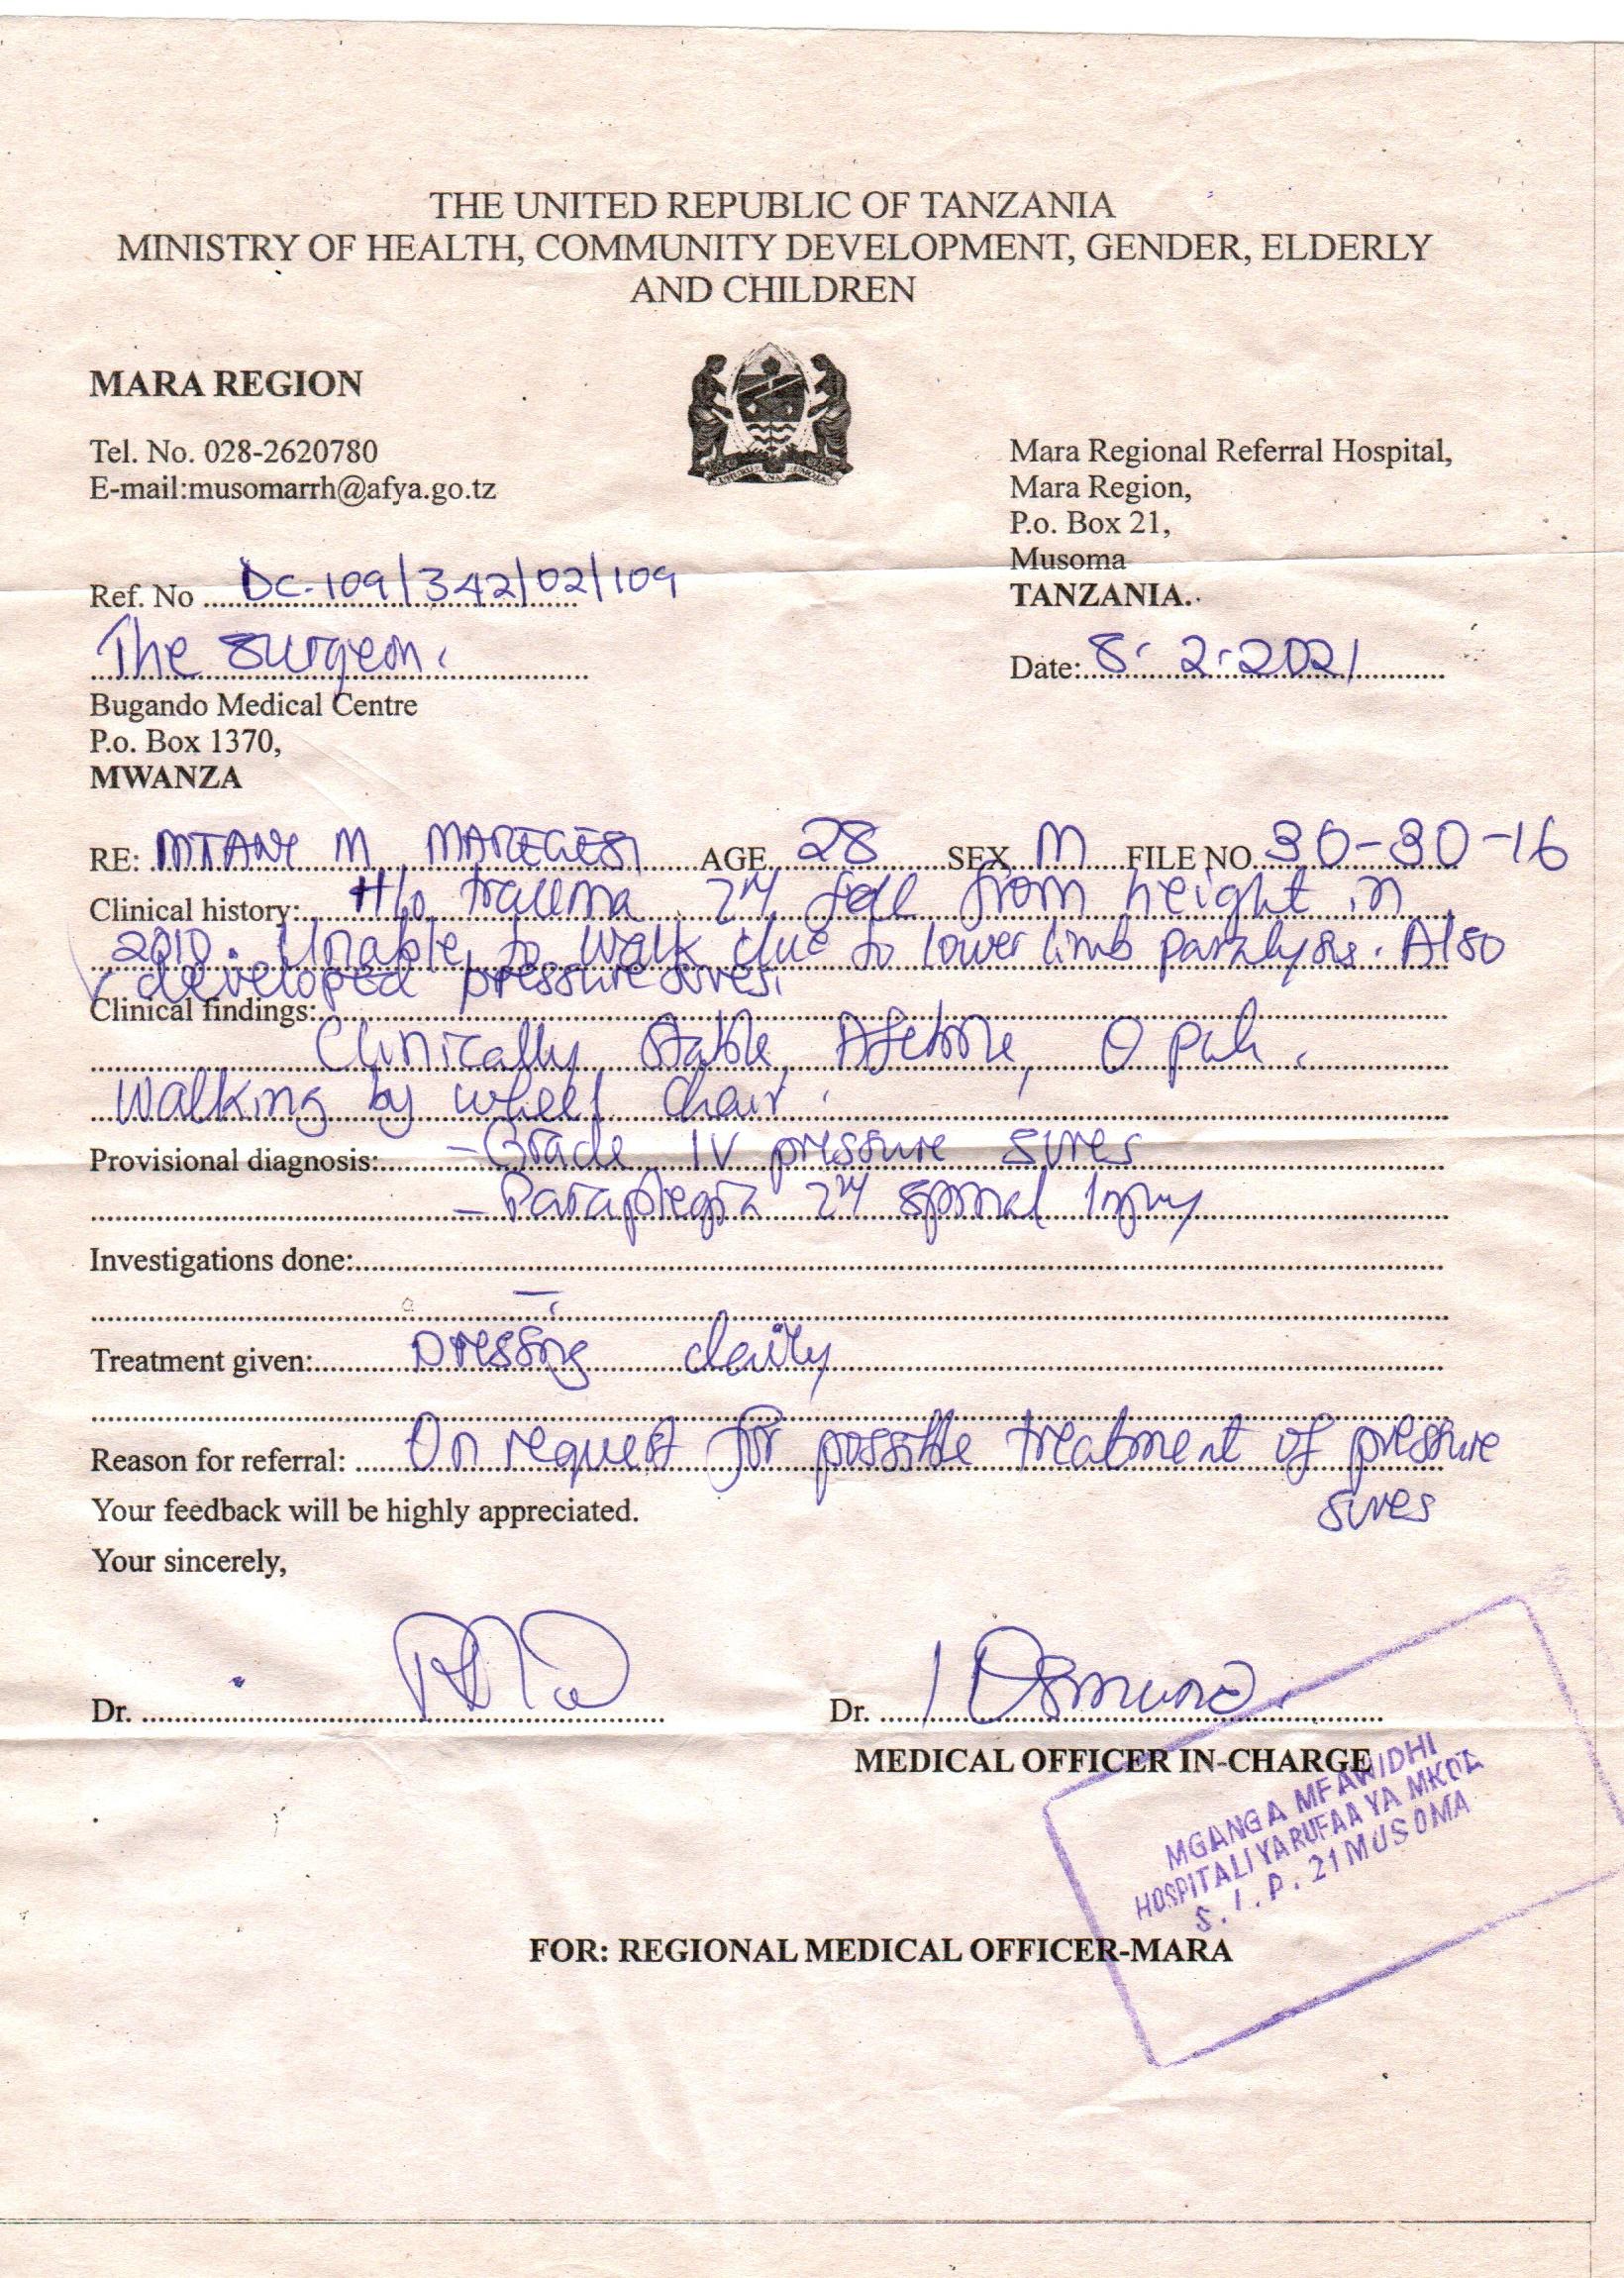 THE UNITED REPUBLIC OF TANZANIA
MINISTRY OF HEALTH, COMMUNITY DEVELOPMENT, GENDER, ELDERLY
AND CHILDREN
MARA REGION
Tel. No. 028-2620780
E-mail:musomarrh@afya.go.tz
Mara Regional Referral Hospital,
Mara Region,
P.o. Box 21,
Musoma
TANZANIA.
Ref. No DC-109/342/02/109
The Surgeon.
Date: 8. 2. 2021
Bugando Medical Centre
P.o. Box 1370,
MWANZA
RE: M M. MAREGESI AGE 28 SEX M FILE NO 30-30-16
Clinical history: H/o trauma 2ry fall from height in
2010. Unable to walk due to lower limb paralysis. Also
developed pressure sores.
Clinical findings:
Clinically Stable, Afebrile,
Walking by wheel chair.
Provisional diagnosis: - Grade IV pressure sores
- Paraplegia 2ry spinal Injury
Investigations done:
Treatment given: Dressing daily
Reason for referral: On request for possible treatment of pressure
sores
Your feedback will be highly appreciated.
Your sincerely,
Dr.
Dr.
MEDICAL OFFICER IN-CHARGE
MGANGA MFAWIDHI
HOSPITALI YA RUFAA YA MKOA
S.L.P. 21 MUSOMA
FOR: REGIONAL MEDICAL OFFICER-MARA